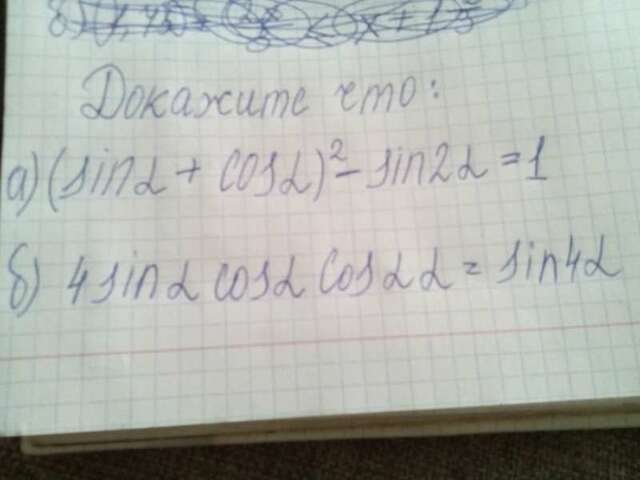 Докажите что:
а) (sinα + cosα)² - sin2α = 1
б) 4 sinα cosα cos2α = sin4α